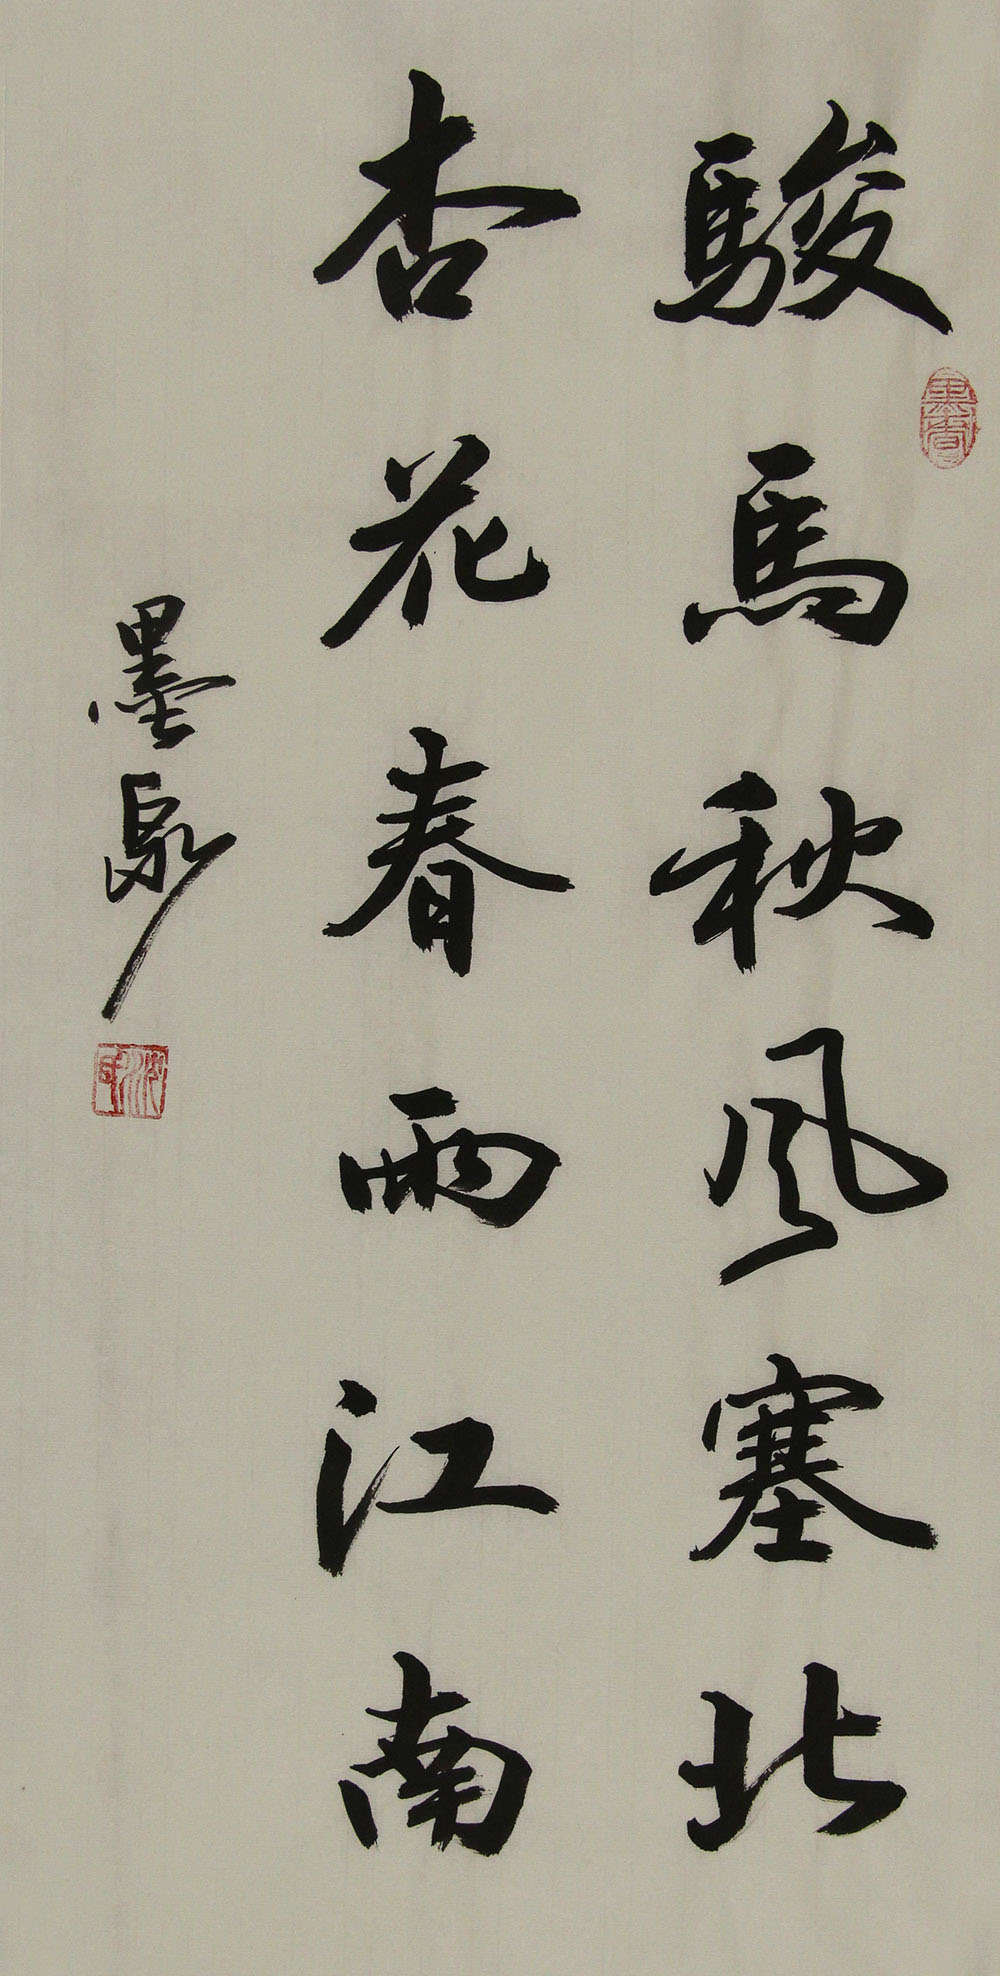 駿馬秋風塞北
杏花春雨江南
墨
墨香